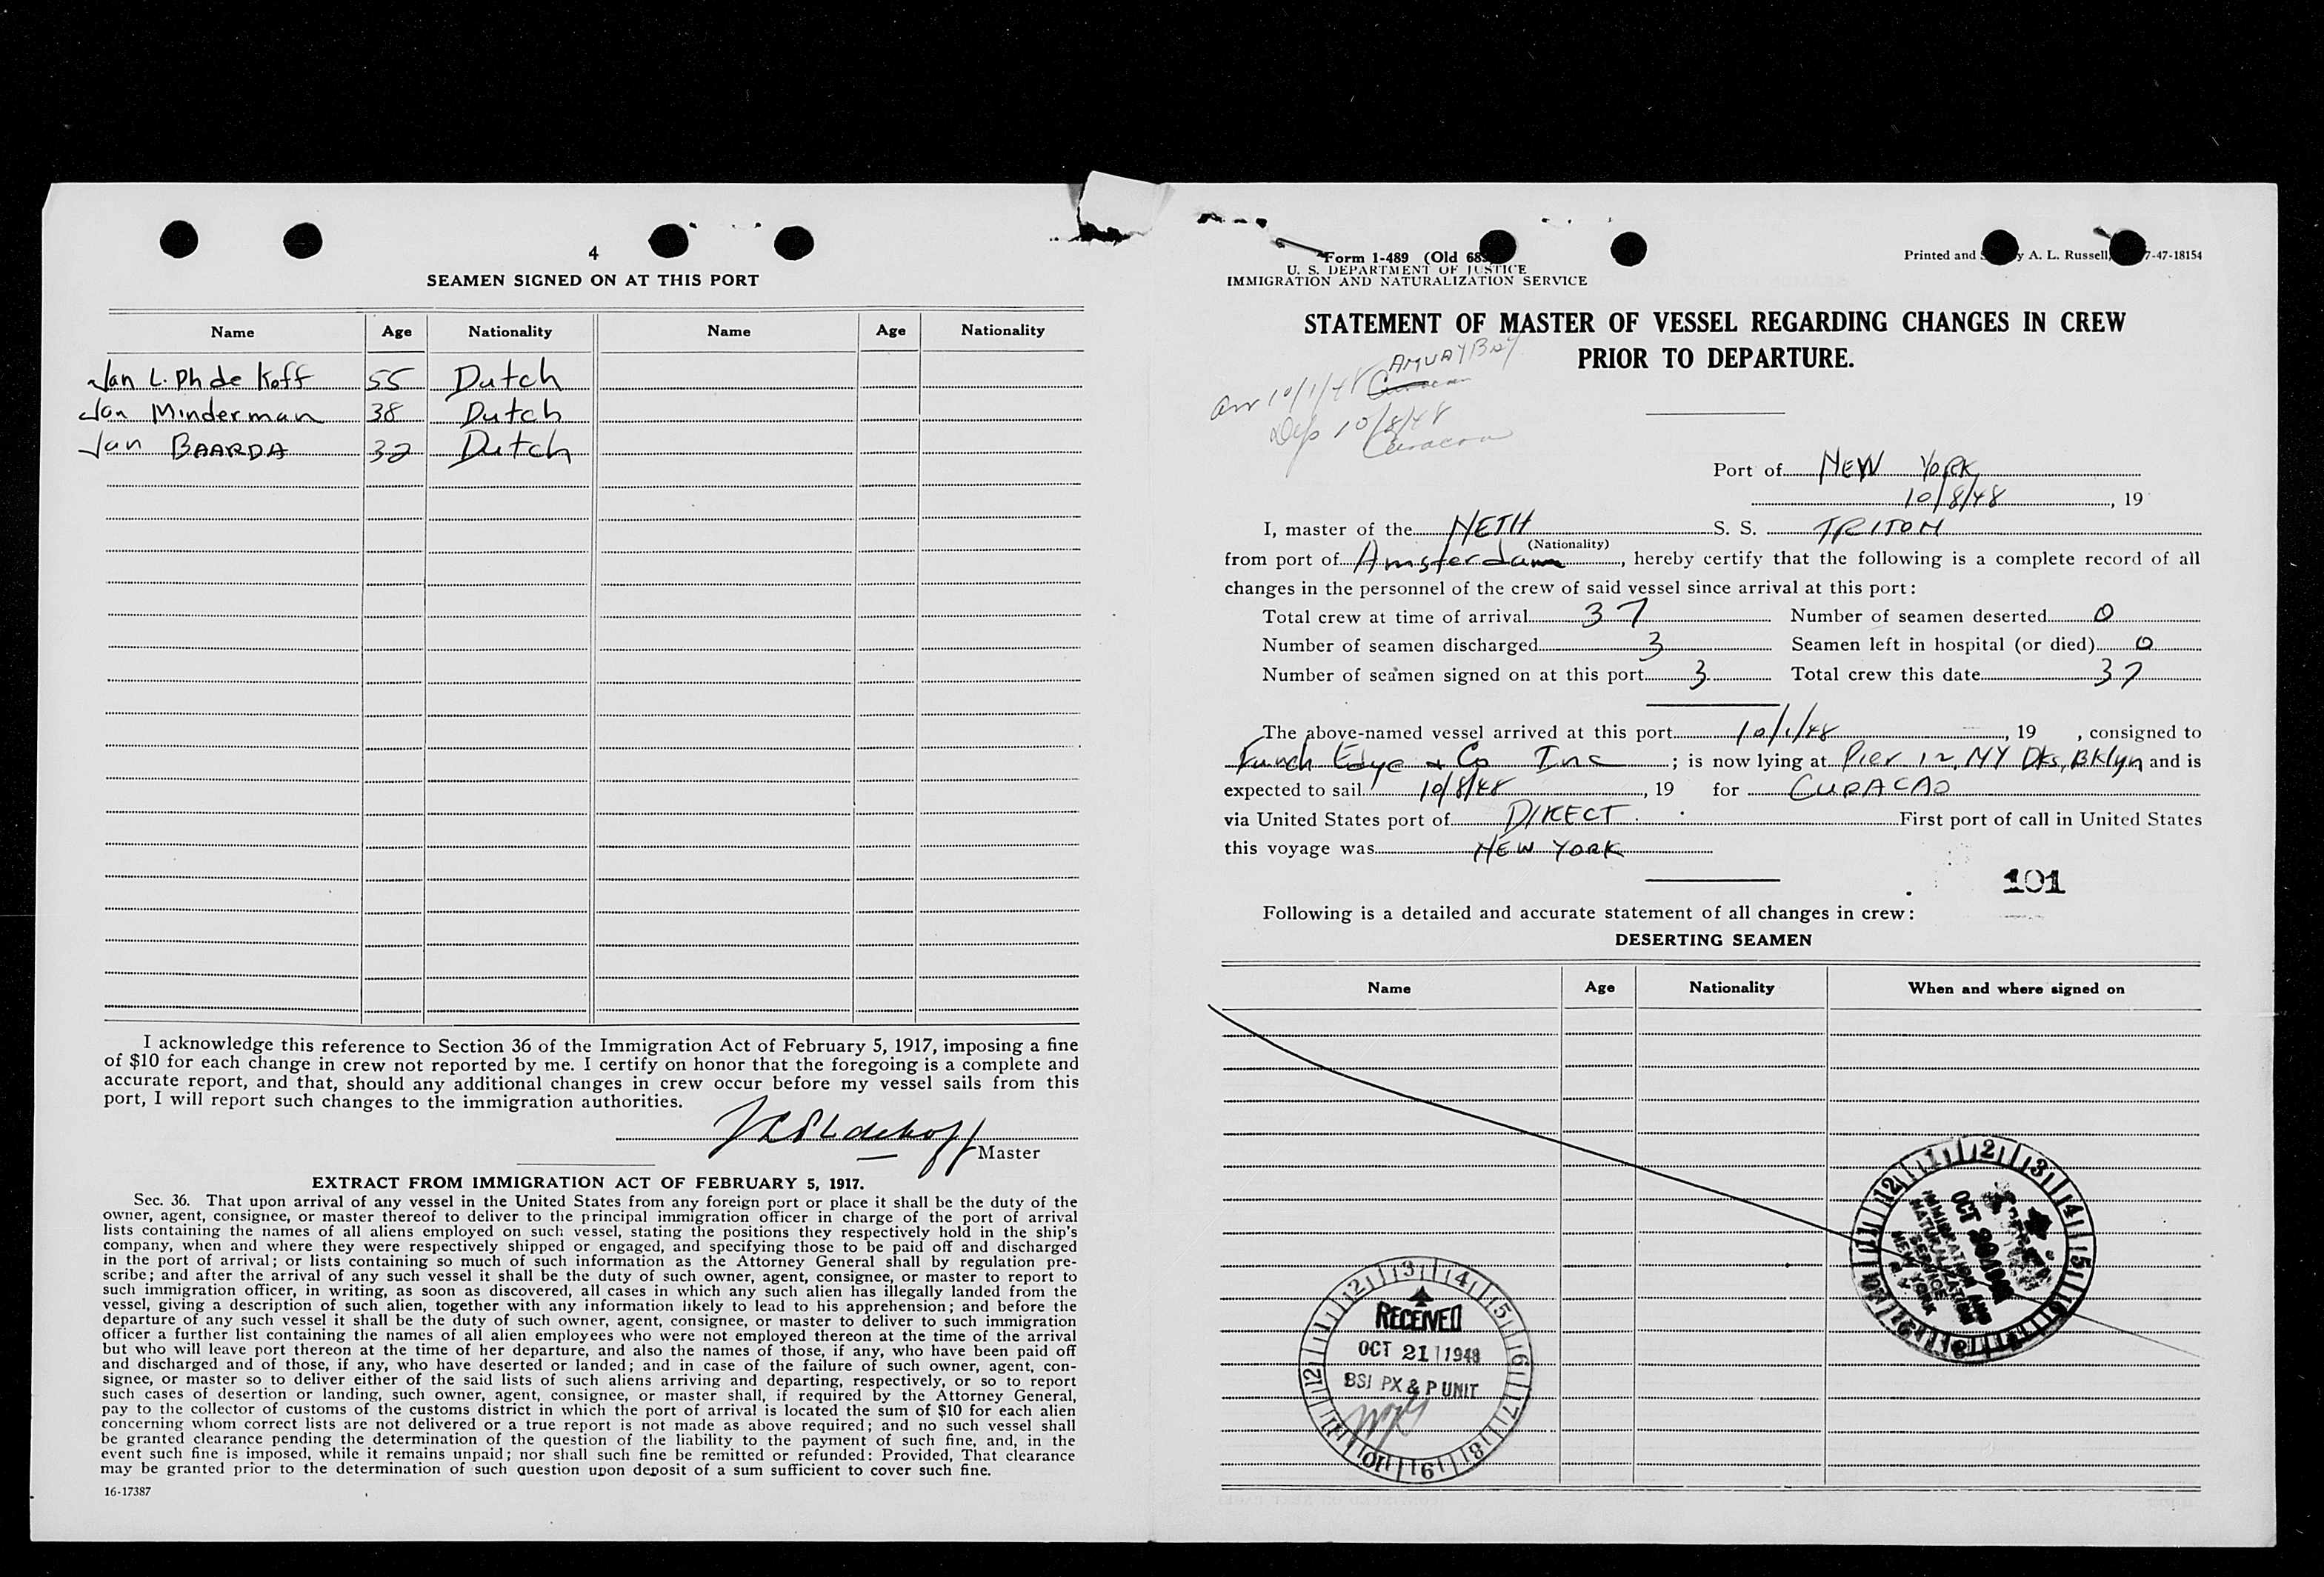 4
SEAMEN SIGNED ON AT THIS PORT
Name Age Nationality Name Age Nationality
Jan L. Ph de Koff 55 Dutch
Jan Minderman 38 Dutch
Jan BAARDA 32 Dutch
I acknowledge this reference to Section 36 of the Immigration Act of February 5, 1917, imposing a fine
of $10 for each change in crew not reported by me. I certify on honor that the foregoing is a complete and
accurate report, and that, should any additional changes in crew occur before my vessel sails from this
port, I will report such changes to the immigration authorities.
JLPhdekoff
Master
EXTRACT FROM IMMIGRATION ACT OF FEBRUARY 5, 1917.
Sec. 36. That upon arrival of any vessel in the United States from any foreign port or place it shall be the duty of the
owner, agent, consignee, or master thereof to deliver to the principal immigration officer in charge of the port of arrival
lists containing the names of all aliens employed on such vessel, stating the positions they respectively hold in the ship's
company, when and where they were respectively shipped or engaged, and specifying those to be paid off and discharged
in the port of arrival; or lists containing so much of such information as the Attorney General shall by regulation pre-
scribe; and after the arrival of any such vessel it shall be the duty of such owner, agent, consignee, or master to report to
such immigration officer, in writing, as soon as discovered, all cases in which any such alien has illegally landed from the
vessel, giving a description of such alien, together with any information likely to lead to his apprehension; and before the
departure of any such vessel it shall be the duty of such owner, agent, consignee, or master to deliver to such immigration
officer a further list containing the names of all alien employees who were not employed thereon at the time of the arrival
but who will leave port thereon at the time of her departure, and also the names of those, if any, who have been paid off
and discharged and of those, if any, who have deserted or landed; and in case of the failure of such owner, agent, con-
signee, or master so to deliver either of the said lists of such aliens arriving and departing, respectively, or so to report
such cases of desertion or landing, such owner, agent, consignee, or master shall, if required by the Attorney General,
pay to the collector of customs of the customs district in which the port of arrival is located the sum of $10 for each alien
concerning whom correct lists are not delivered or a true report is not made as above required; and no such vessel shall
be granted clearance pending the determination of the question of the liability to the payment of such fine, and, in the
event such fine is imposed, while it remains unpaid; nor shall such fine be remitted or refunded: Provided, That clearance
may be granted prior to the determination of such question upon deposit of a sum sufficient to cover such fine.
16-17387
Form 1-489 (Old 68
Printed and y A. L. Russell, 7-47-18154
U. S. DEPARTMENT OF JUSTICE
IMMIGRATION AND NATURALIZATION SERVICE
STATEMENT OF MASTER OF VESSEL REGARDING CHANGES IN CREW
PRIOR TO DEPARTURE.
AMUAY BAY
arr 10/1/48 Curacao
Dep 10/8/48
Curacao
Port of NEW YORK
10/8/48, 19
I, master of the NETH S. S. TRITON
(Nationality)
from port of Amsterdam, hereby certify that the following is a complete record of all
changes in the personnel of the crew of said vessel since arrival at this port:
Total crew at time of arrival 37 Number of seamen deserted 0
Number of seamen discharged 3 Seamen left in hospital (or died) 0
Number of seamen signed on at this port 3 Total crew this date 37
The above-named vessel arrived at this port 10/1/48, 19 , consigned to
Funch Edye & Co Inc; is now lying at Pier 12, NY Dks, BKlyn and is
expected to sail 10/8/48, 19 for CURACAO
via United States port of DIRECT. First port of call in United States
this voyage was NEW YORK
101
Following is a detailed and accurate statement of all changes in crew:
DESERTING SEAMEN
Name Age Nationality When and where signed on
1 2 3 4 5 6 7 8 9 10 11 12
RECEIVED
OCT 21 1948
BSI PX & P UNIT
12 1 2 3 4 5
OCT 20
IMMIGRATION AND
NATURALIZATION
SERVICE
NEW YORK
N. Y.